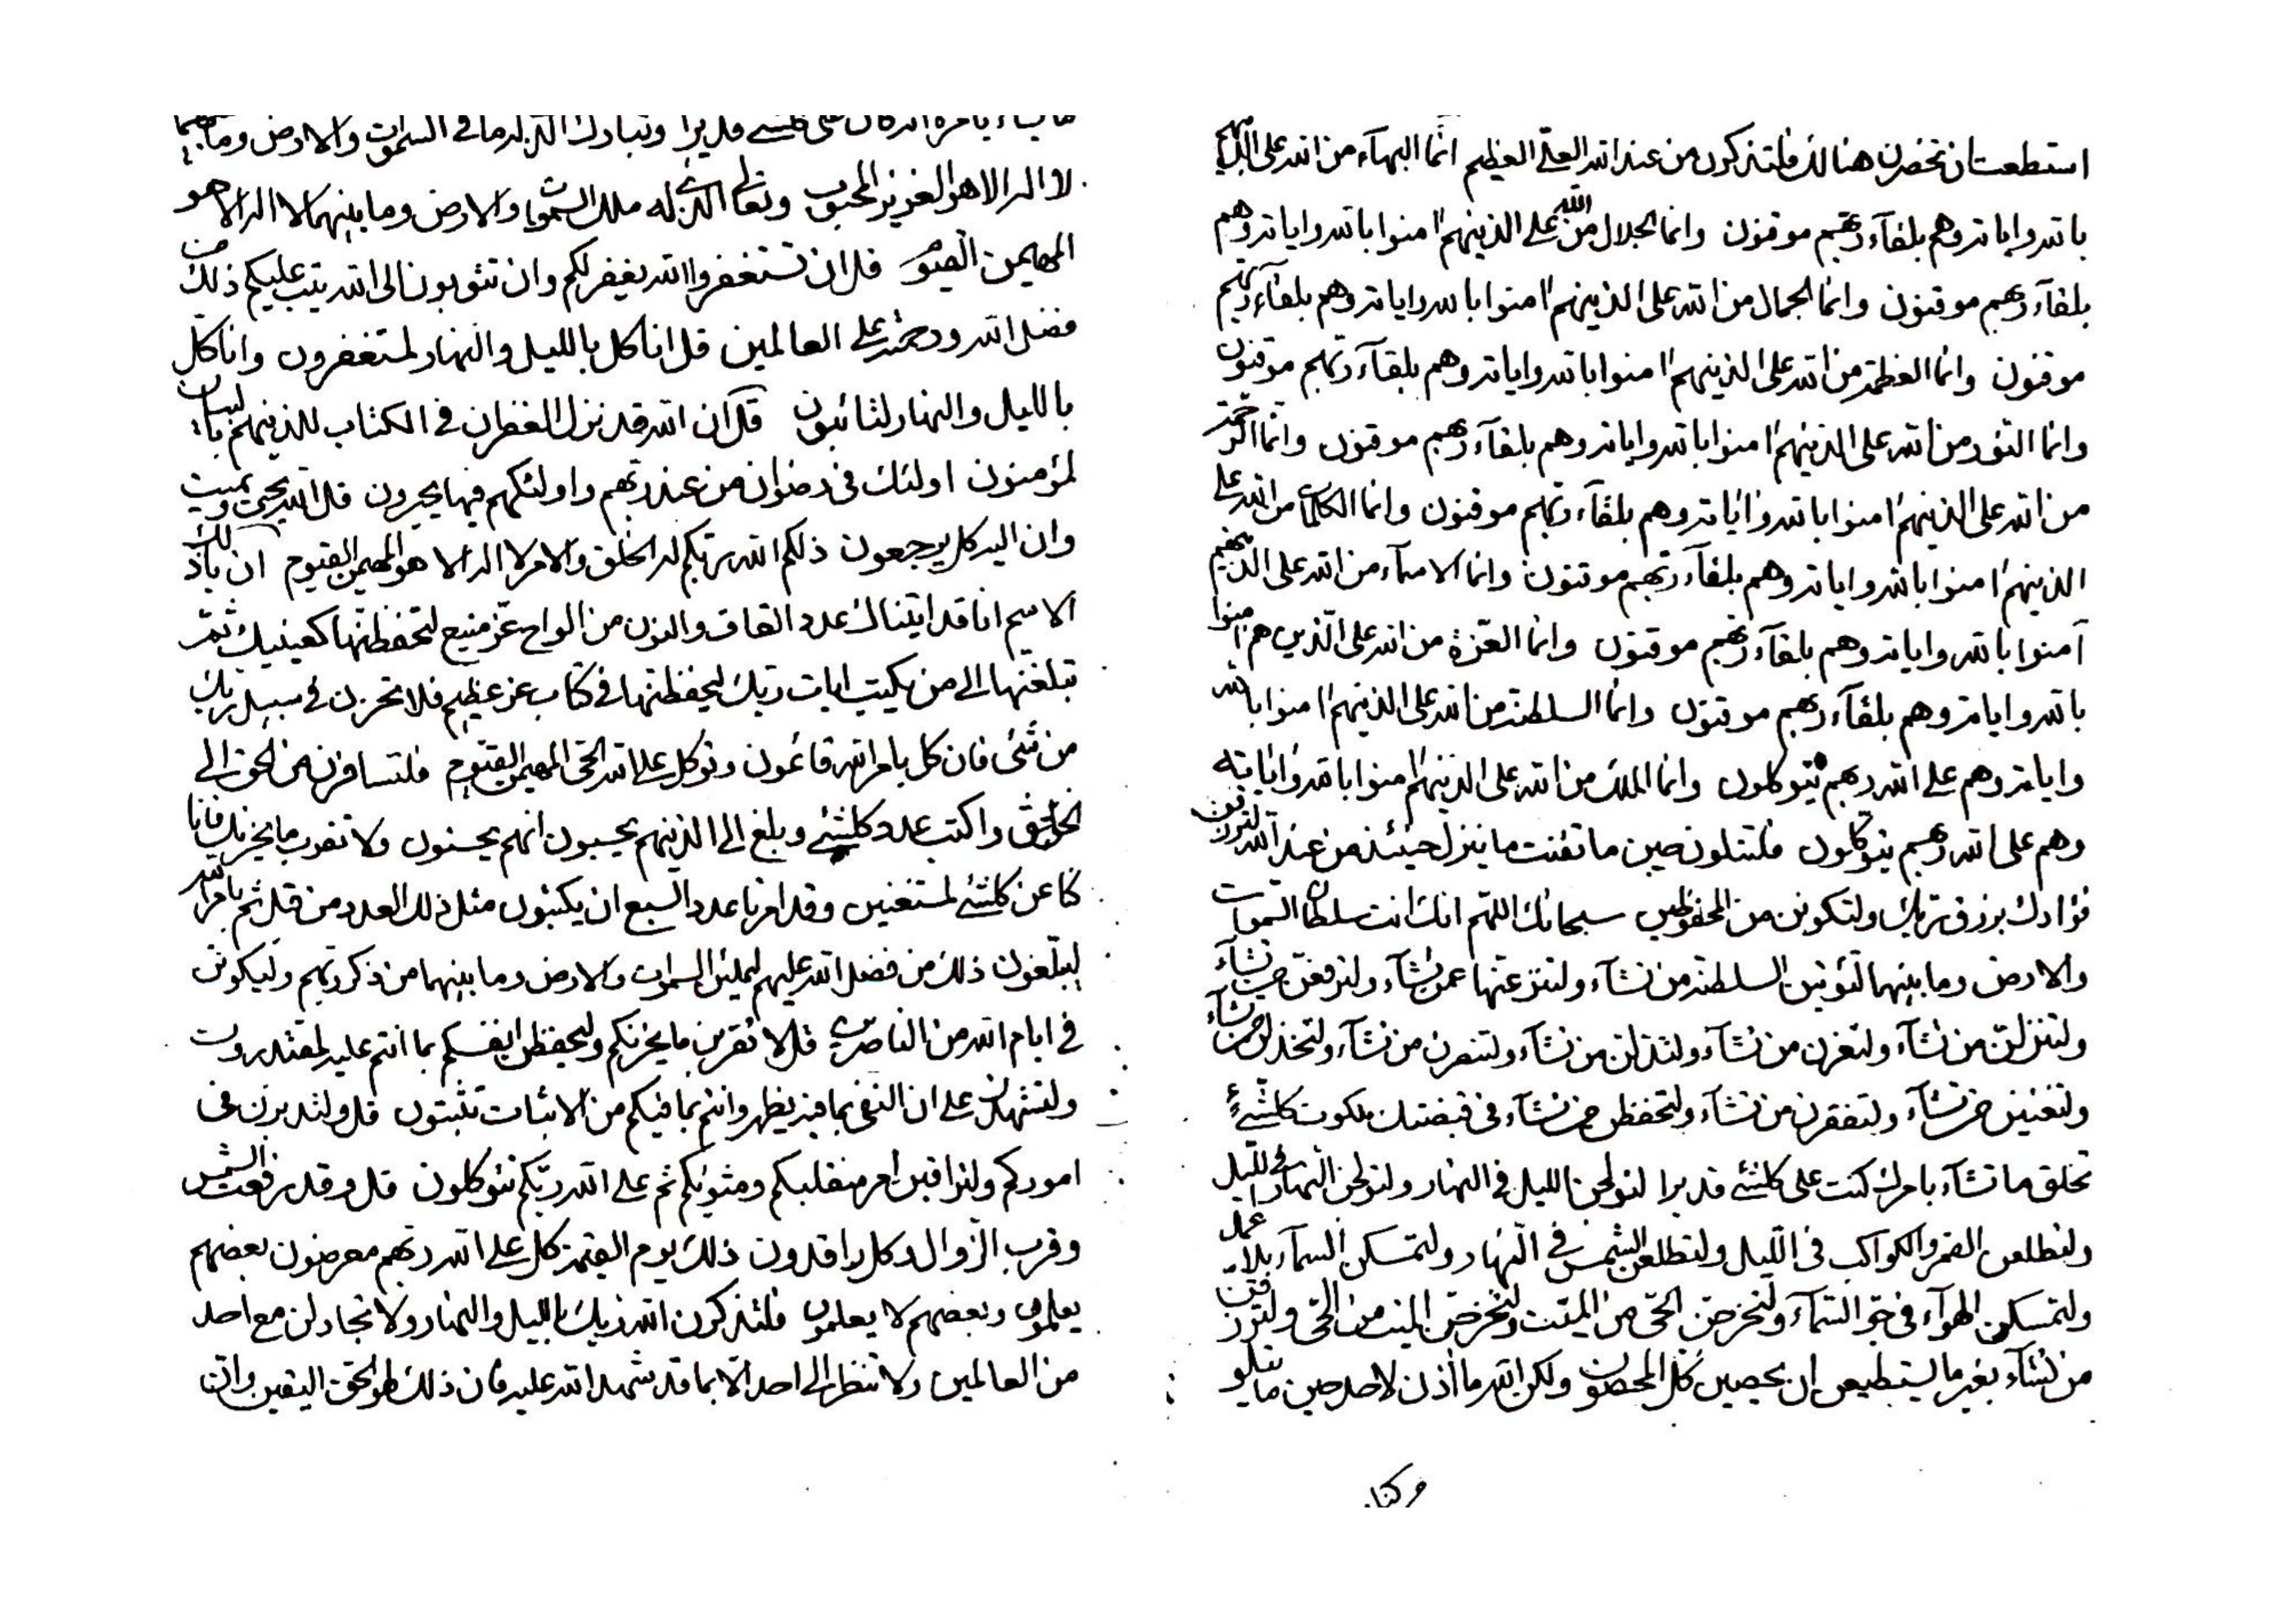 استطعت ان تحضرن هنالك فلتذكرون من عند الله العلي العظيم انما البهآء من الله على الذينهم
بالله واياته وهم بلقآء ربهم موقنون وانما الجلال من الله على الذينهم امنوا بالله واياته وهم
بلقآء ربهم موقنون وانما الجمال من الله على الذينهم امنوا بالله واياته وهم بلقآء ربهم
موقنون وانما العظمة من الله على الذينهم امنوا بالله واياته وهم بلقآء ربهم موقنون
وانما النور من الله على الذينهم امنوا بالله واياته وهم بلقآء ربهم موقنون وانما الرحمة
من الله على الذينهم امنوا بالله واياته وهم بلقآء ربهم موقنون وانما الكلمات من الله على
الذينهم امنوا بالله واياته وهم بلقآء ربهم موقنون وانما الاسمآء من الله على الذينهم
آمنوا بالله واياته وهم بلقآء ربهم موقنون وانما العزة من الله على الذين هم امنوا
بالله واياته وهم بلقآء ربهم موقنون وانما السلطنة من الله على الذينهم امنوا بالله
واياته وهم على الله ربهم يتوكلون وانما الملك من الله على الذينهم امنوا بالله واياته
وهم على الله ربهم يتوكلون فلتتلون حين ما تفنت ما ينزل حينئذ من عند الله لترزقن
فؤادك برزق ربك ولتكونن من المحفوظين سبحانك اللهم انك انت سلطان السموات
والارض وما بينهما لتؤتين السلطنة من تشآء ولتنزعنها عمن تشآء ولترفعن من تشآء
ولتنزلن من تشآء ولتعزن من تشآء ولتذلن من تشآء ولتنصرن من تشآء ولتخذلن من تشآء
ولتغنين من تشآء ولتفقرن من تشآء ولتحفظن من تشآء في قبضتك ملكوت كلشئ
تخلق ما تشآء بامرك كنت على كلشئ قديرا لتولجن الليل في النهار ولتولجن النهار في الليل
ولتطلعن القمر والكواكب في الليل ولتطلعن الشمس في النهار ولتمسكن السمآء بلا عمد
ولتمسكن الهوآء في جو السمآء ولتخرجن الحي من الميت ولتخرجن الميت من الحي ولترزقن
من تشآء بغير ما يستطيعن ان يحصين كل المحصون ولكن الله ما اذن لاحد حين ما يتلو
وكنا
ما يشاء بامره انه كان على كلشئ قديرا وتبارك الذي له ما في السموات والارض وما بينهما
لا اله الا هو العزيز المحبوب وتعالى الذي له ملك السموات والارض وما بينهما لا اله الا هو
المهيمن القيوم قل ان تستغفروا الله يغفر لكم وان تتوبون الى الله يتب عليكم ذلك من
فضل الله ورحمته على العالمين قل انا كل بالليل والنهار لمستغفرون وانا كل
بالليل والنهار لتائبون قل ان الله قد نزل الغفران في الكتاب للذينهم بالبيان
لمؤمنون اولئك في رضوان من عند ربهم واولئكهم فيها يحبرون قل الله يحيي ويميت
وان اليه كل يرجعون ذلكم الله ربكم له الخلق والامر لا اله الا هو المهيمن القيوم ان يا ذلك
الاسم انا قد اتيناك عدد القاف والنون من الواح عز منيع لتحفظنها كعينيك ثم
تبلغنها الى من يكتب ايات ربك ليحفظنها في كتاب عز عظيم فلا تحزن في سبيل ربك
من شئ فان كل بامر الله قائمون وتوكل على الله الحي المهيمن القيوم فلتسافرن من الحق الى
الخلق واكتب عدد كلشئ وبلغ الى الذينهم يحسبون انهم يحسنون ولا تقرب ما يحزنك فانا
كنا عن كلشئ لمستغنين وقد امرنا عدد السبع ان يكتبون مثل ذلك العدد من قبل ثم بامر الله
ليبلغون ذلك من فضل الله عليهم ليملئن السموات والارض وما بينهما من ذكر ربهم وليكونن
في ايام الله من الناصرين قل لا تقربن ما يحزنكم ولتحفظن انفسكم بما انتم عليه لمقتدرون
ولتشهدن على ان النفي بما فيه يظهر وانتم بما فيكم من الاثبات تثبتون قل ولتدبرن في
اموركم ولتراقبن امر منقلبكم ومثويكم ثم على الله ربكم تتوكلون قل وقد رفعت الشمس
وقرب الزوال وكل راقدون ذلك يوم القيمة كل على الله ربهم معرضون بعضهم
يعلمون وبعضهم لا يعلمون فلتذكرن الله ربك بالليل والنهار ولا تجادلن مع احد
من العالمين ولا تنظر الى احد الا بما قد شهد الله عليه فان ذلك لهو الحق اليقين واننا